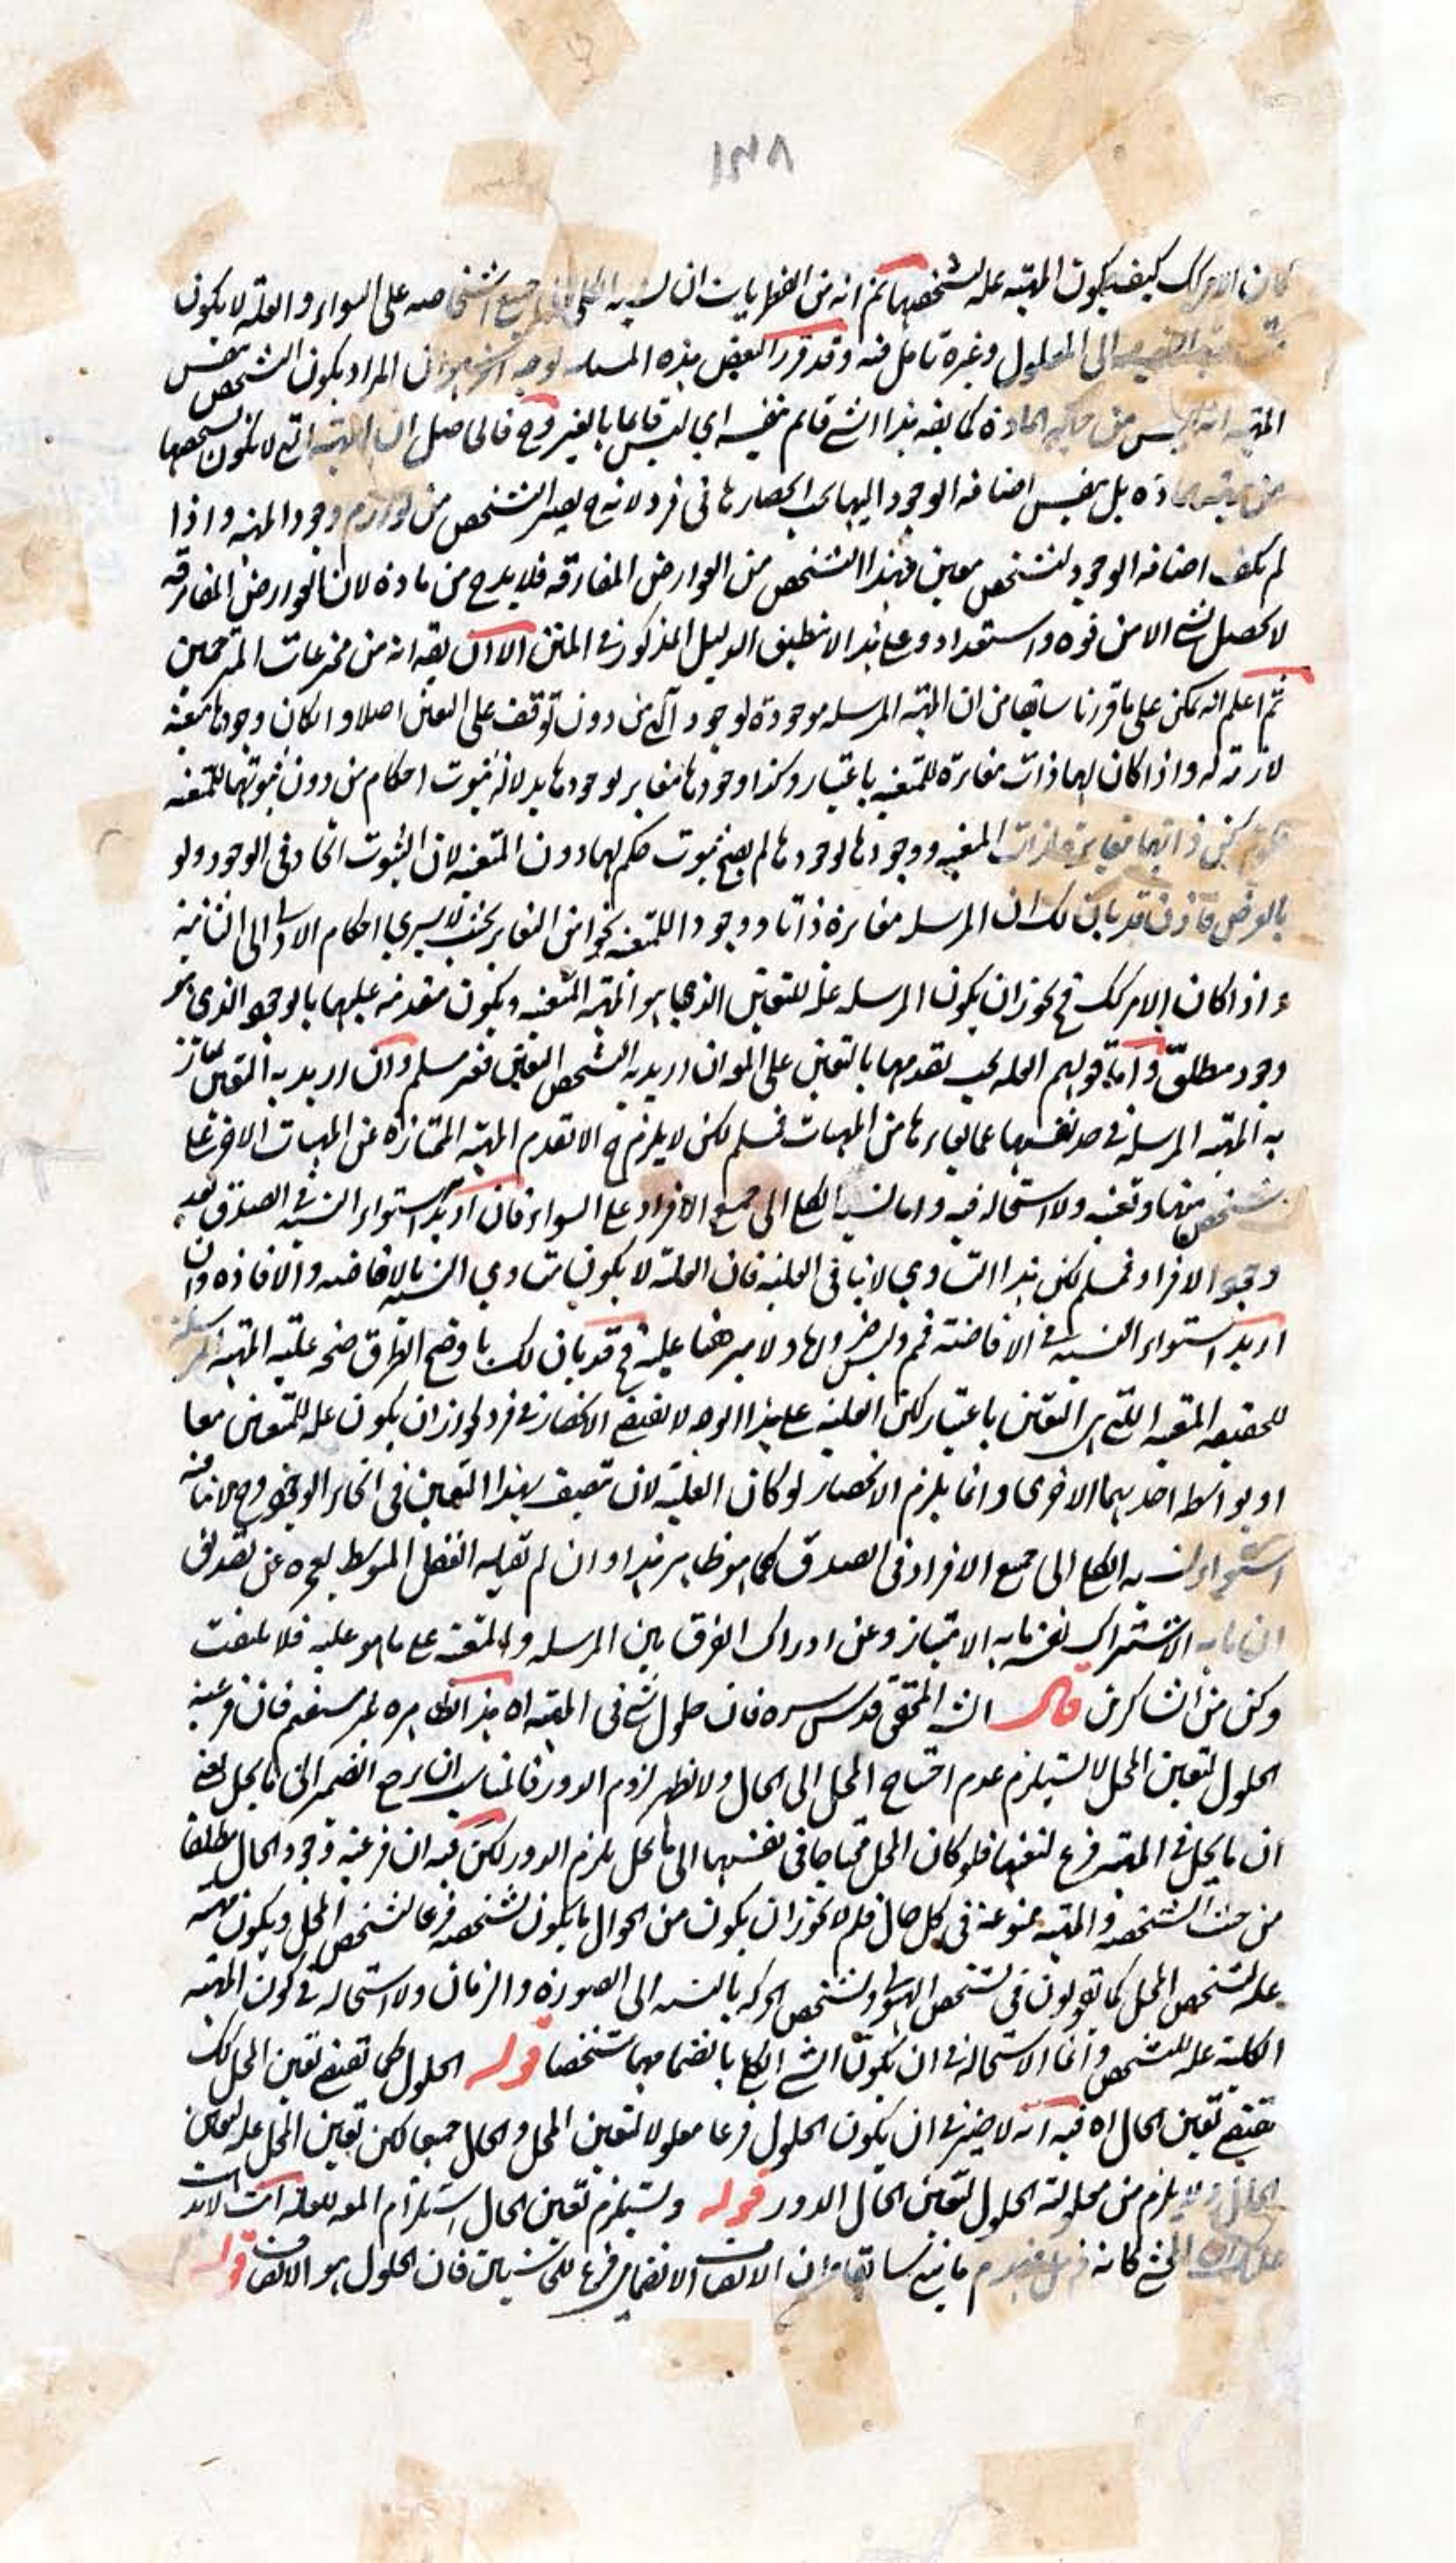 ١٣٨
كان الامر كك كيف يكون المهية علة لتشخصها ثم انه من الفطريات ان نسبة الكلي الى جميع اشخاصه على السواء والعلة لا يكون
الى المعلول وغيره تامل فيه وقد قرر البعض هذه المسئلة بوجه اخر هو ان المراد بكون التشخص نفس
المهية انه ليس من جهة المادة كما يقه هذا الشئ قائم بنفسه اي ليس قائما بالغير وح فالحاصل ان المهية التي لا يكون تشخصها
من جهة المادة بل بنفس اضافة الوجود اليها يجب انحصارها في فرد لانه ح يصير التشخص من لوازم وجود المهية واذا
لم يكف اضافة الوجود لتشخص معين فهذا التشخص من العوارض المفارقة فلا بد ح من مادة لان العوارض المفارقة
لا تحصل لشئ الا من قوة واستعداد وعلى هذا لا ينطبق الدليل المذكور في المتن الا ان يقه انه من مخترعات المترجمين
ثم اعلم انه يمكن على ما قررنا سابقا من ان المهية المرسلة موجودة لوجود آلهي من دون توقف على التعين اصلا و الكان وجودها متعينة
لازمة له واذا كان لها ذات مغايرة للمتعينة باعتبار وكذا وجودها مغاير لوجودها بدلالة ثبوت احكام من دون ثبوتها للمتعينة
فلو لم يكن ذاتها مغايرة لذات المتعينة ووجودها لوجودها لم يصح ثبوت حكم لها دون المتعينة لان الثبوت اتحاد في الوجود ولو
بالعرض فاذن قد بان لك ان المرسلة مغايرة ذاتا ووجودا للمتعينة نحوا من التغاير بحيث لا يسري احكام الاولى الى الثانية
واذا كان الامر كك فح يجوز ان يكون المرسلة علة للتعين الذي هو المهية المتعينة ويكون متقدمة عليها بالوجود الذي هو
وجود مطلق واما قولهم العلة يجب تقدمها بالتعين على المع ان اريد به الشخص المعين فغير مسلم وان اريد به التعين يمتاز
به المهية المرسلة في حد نفسها عما يغايرها من المهيات فمسلم لكن لا يلزم ح الا تقدم المهية الممتازة عن المهيات الاخر على
تشخص منها وتعينه ولا استحالة فيه واما نسبة الكلي الى جميع الافراد على السواء فان اريد استواء النسبة في الصدق بعد
وجود الافراد فمسلم لكن هذا التساوي لا ينافي العلية فان العلة لا يكون متساوي النسبة بالافاضة والافادة وان
اريد استواء النسبة في الافاضة فمم وليس ضروريا ولا مبرهنا عليه فح قد بان لك باوضح الطرق صحة علية المهية المرسلة
للحقيقة المتعينة اللتي هي التعين باعتبار لكن العلية على هذا الوجه لا يقتضي الانحصار في فرد لجواز ان يكون علة للمتعينين معا
او بواسطة احديهما الاخرى وانما يلزم الانحصار لو كان العلية لان تتصف بهذا التعين في انحاء الوجود وح لا ينافيه
استواء نسبة الكلي الى جميع الافراد في الصدق كما هو ظاهر هذا وان لم تقبله الفضل المتوسط لعجزه عن تصديق
ان ما به الاشتراك نفس ما به الامتياز وعن ادراك الفرق بين المرسلة والمتعينة على ما هو عليه فلا تلتفت
وكن من الشاكرين قال الش المحقق قدس سره فان حلول شئ في المهية اه هذا بظاهره غير مستقيم فان فرعية
الحلول لتعين المحل لا يستلزم عدم احتياج المحل الى الحال ولا يظهر لزوم الدور فالمناسب ان يرجع الضمير الى ما يحل يعني
ان ما يحل في المهية فرع لتعينها فلو كان المحل محتاجا في تعينها الى ما يحل يلزم الدور لكن فيه ان فرعية وجود الحال مطلقا
من حيث التشخص والمهية ممنوعة في كل حال فلم لا يجوز ان يكون من الحوال ما يكون تشخصه فرعا لتشخص المحل ويكون مهيته
علة لتشخص المحل كما تقولون في تشخص الهيولى وتشخص الحركة بالنسبة الى الصورة والزمان ولا استحالة في كون المهية
الكلية علة للتشخص وانما الاستحالة في ان يكون الشئ الكلي بانضمامها متشخصا قوله الحلول كما تقتضي تعين المحل كك
تقتضي تعين الحال اه فيه انه لا ضير في ان يكون الحلول فرعا معلولا لتعين المحل والحال جميعا لكن تعين المحل علة لتعين
الحال ولا يلزم من معلولية الحلول لتعين الحال الدور قوله ويستلزم تعين الحال استلزام المع للعلة
كانه مابين سابقا من ان الاتصاف الانضمامي فرع للحاشيتين فان الحلول هو الاتصاف قوله